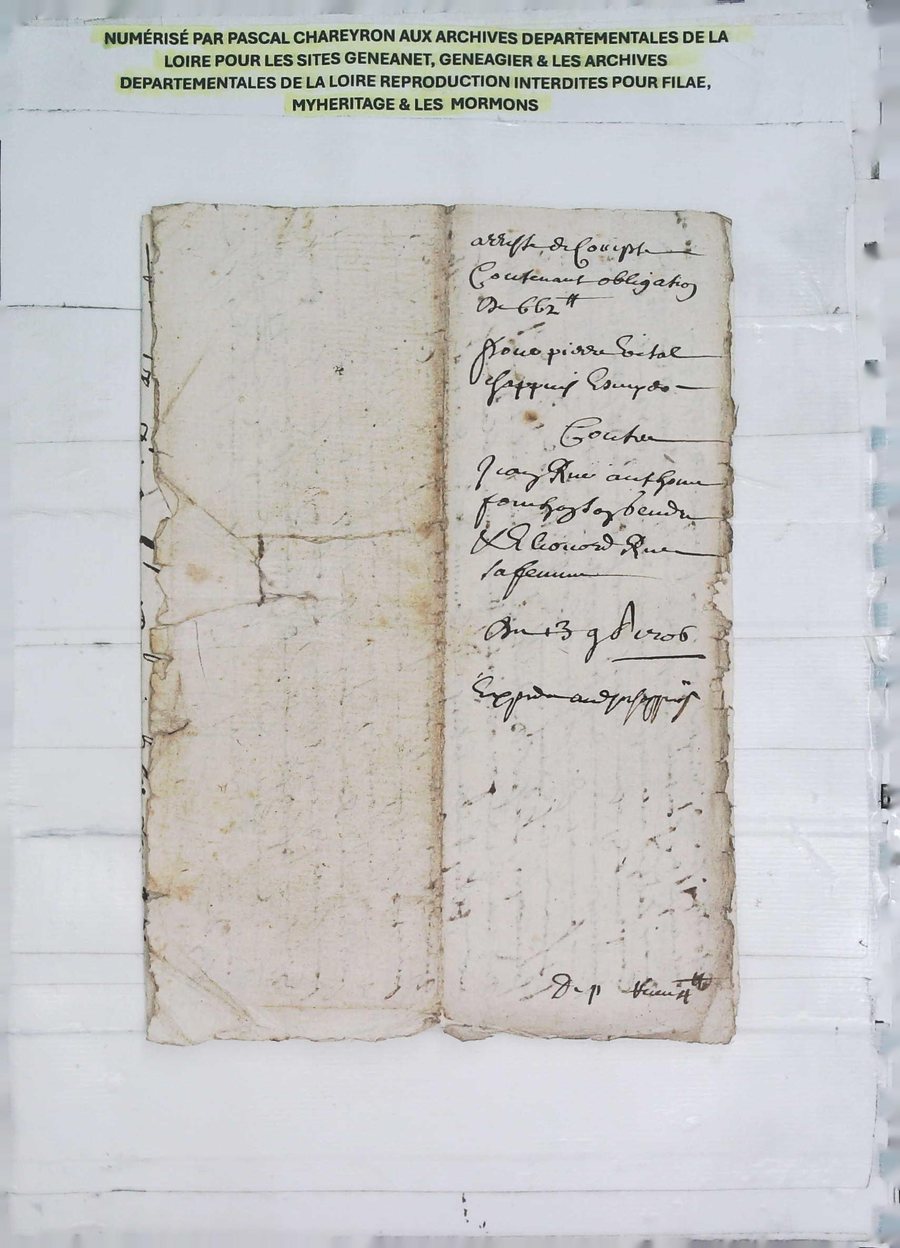 NUMÉRISÉ PAR PASCAL CHAREYRON AUX ARCHIVES DEPARTEMENTALES DE LA
LOIRE POUR LES SITES GENEANET, GENEAGIER & LES ARCHIVES
DEPARTEMENTALES DE LA LOIRE REPRODUCTION INTERDITES POUR FILAE,
MYHERITAGE & LES MORMONS
arreste de Compte
Contenant obligation
De 662tt
Pour pierre Vital
Chappuis Escuyer
Contre
anthoine
& Elionord
sa femme
Du 13 9b 1706